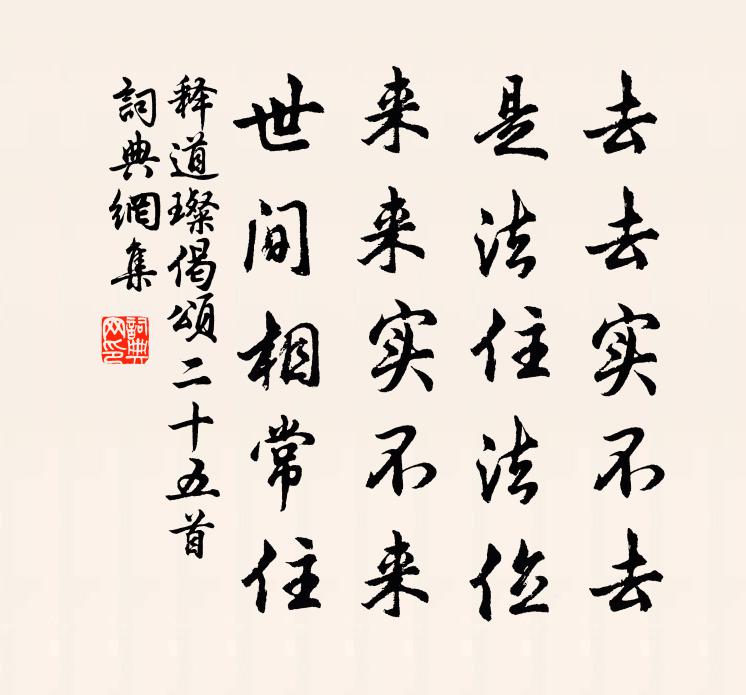 去去实不去
是法住法位
来来实不来
世间相常住
释道璨偈頌二十五首
詞典網集
詞典网印